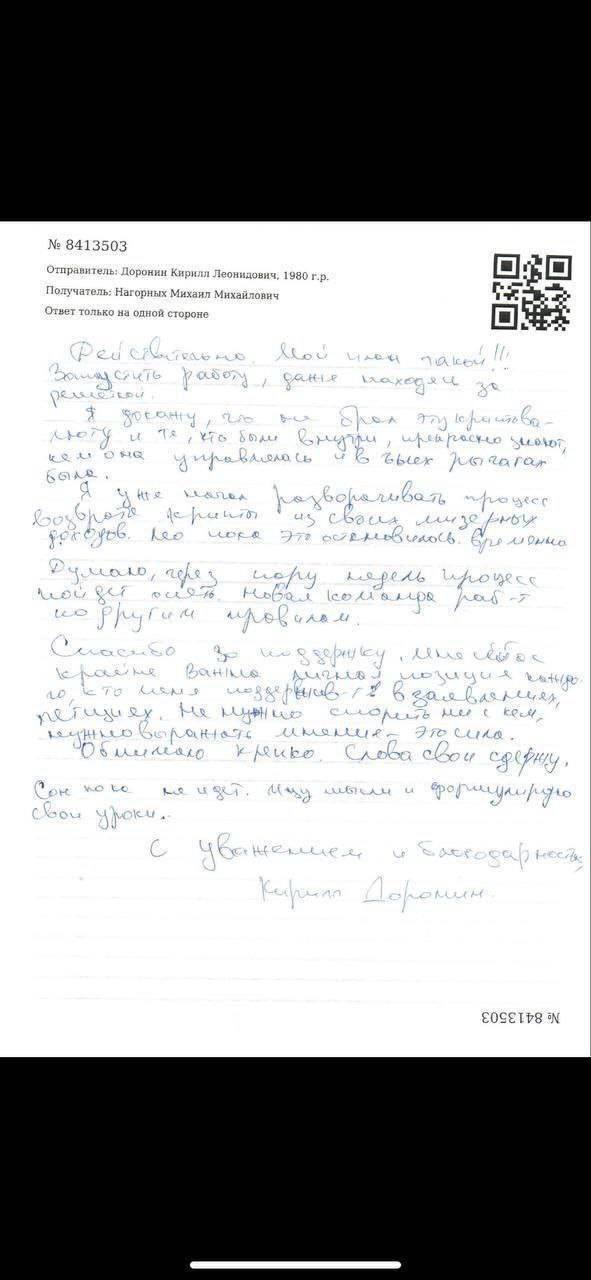 № 8413503
Отправитель: Доронин Кирилл Леонидович, 1980 г.р.
Получатель: Нагорных Михаил Михайлович
Ответ только на одной стороне
Действительно. Мой план такой!!!
Запустить работу, даже находясь за
решёткой.
Я докажу, что не брал эту криптова-
люту и те, кто были внутри, прекрасно знают,
кем она управлялась и в чьих рычагах
была.
Я уже начал разворачивать процесс
возврата крипты из своих мизерных
доходов. Но пока это остановилось. Временно
Думаю, через пару недель процесс
пойдет опять. Новая команда раб-т
по другим правилам.
Спасибо за поддержку. Мне
крайне важна личная позиция каждо-
го, кто меня поддержив-т в заявлениях,
петициях. Не нужно спорить ни с кем,
нужно выражать мнение - это сила.
Обнимаю крепко. Слова свои сдержу.
Сон пока не идет. Ищу мысли и формулирую
свои уроки..
С уважением и благодарностью,
Кирилл Доронин.
№ 8413503